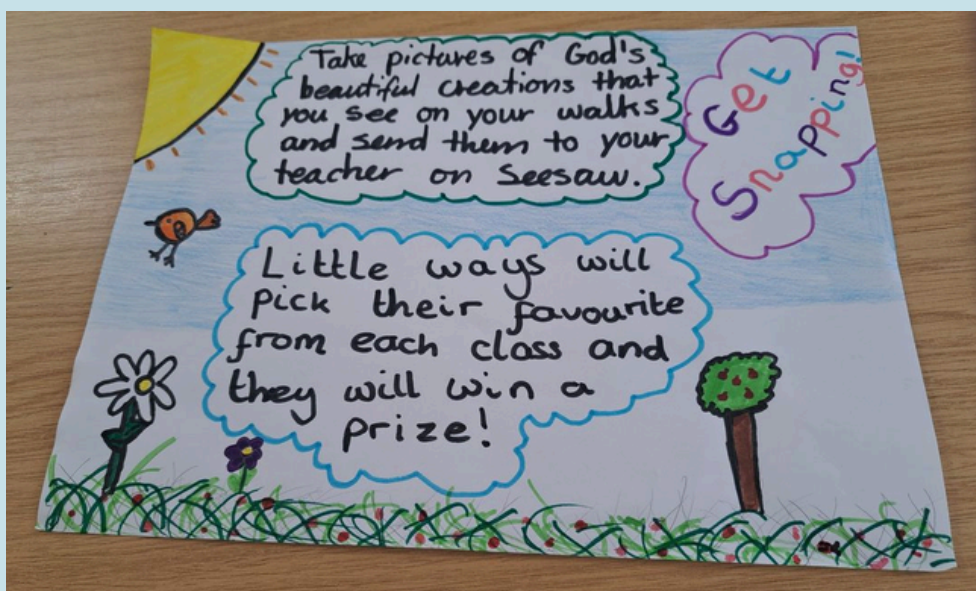 Take pictures of God's
beautiful creations that
you see on your walks
and send them to your
teacher on Seesaw.
Get
Snapping!
Little ways will
pick their favourite
from each class and
they will win a
prize!